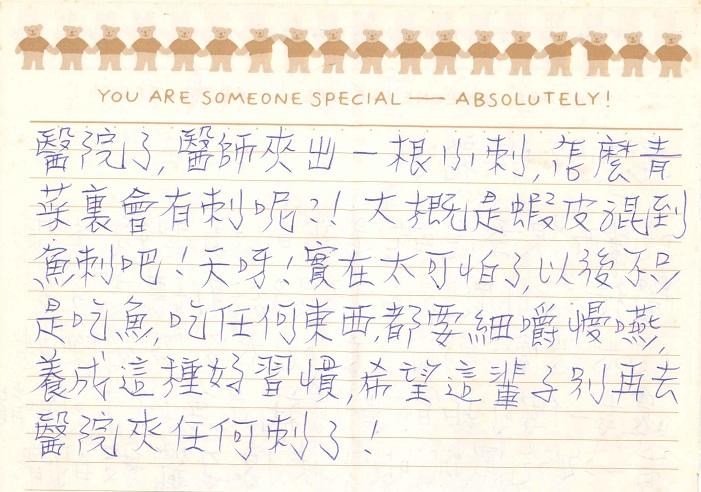 YOU ARE SOMEONE SPECIAL — ABSOLUTELY!
醫院了,醫師夾出一根小刺,怎麼青
菜裏會有刺呢?!大概是蝦皮混到
魚刺吧!天呀!實在太可怕了,以後不只
是吃魚,吃任何東西,都要細嚼慢嚥,
養成這種好習慣,希望這輩子別再去
醫院夾任何刺了!